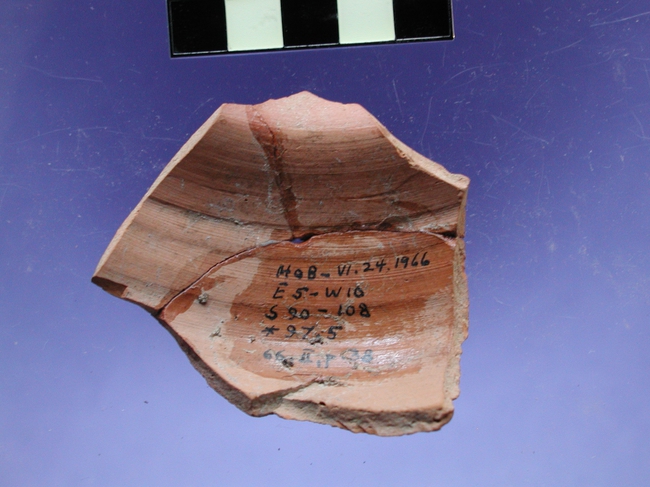 MaB - VI.24.1966
E5-W10
S 90 - 108
* 97.5
66